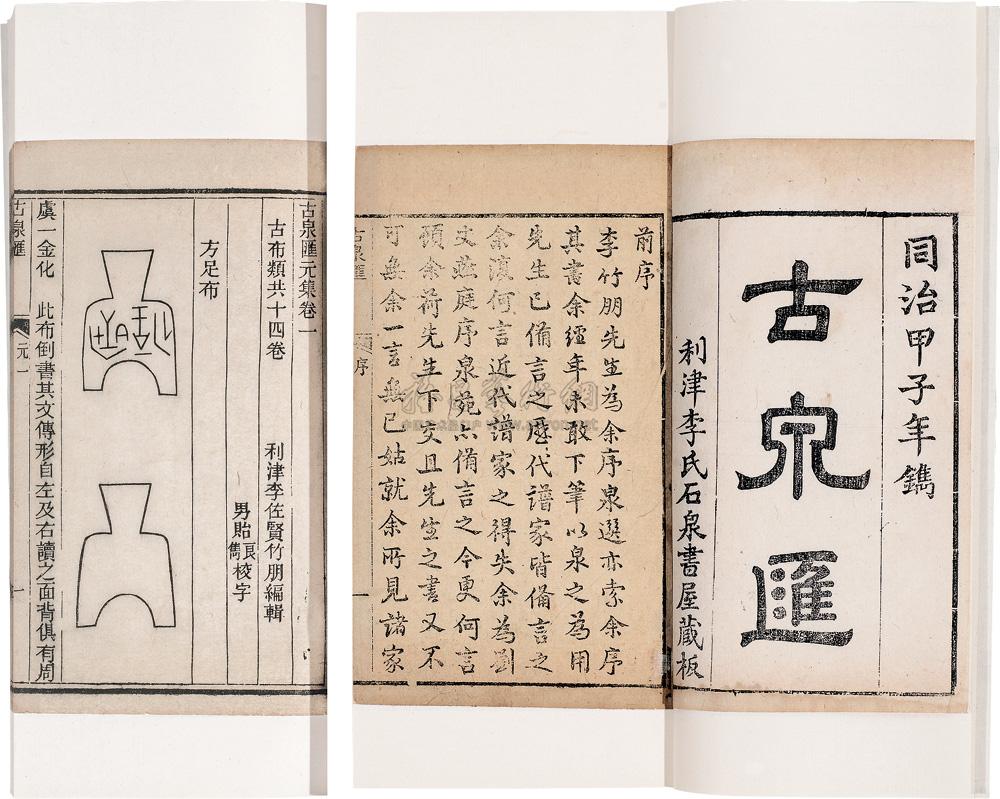 同治甲子年鐫
古泉匯
利津李氏石泉書屋藏板
前序
李竹朋先生為余序泉選亦索余序
其書余經年未敢下筆以泉之為用
先生已備言之歷代譜家皆備言之
余復何言近代譜家之得失余為劉
丈燕庭序泉苑亦備言之今更何言
顧余荷先生下交且先生之書又不
可無余一言無已姑就余所見諸家
古泉匯
序
一
古泉匯元集卷一
古布類共十四卷
利津李佐賢竹朋編輯
男貽良雋校字
方足布
虞一金化 此布倒書其文傳形自左及右讀之面背俱有周
古泉匯
元一
一